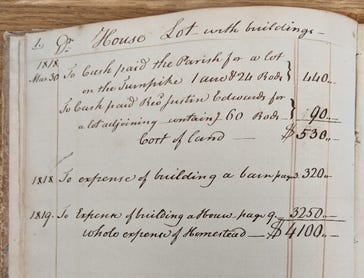 Dr House Lot with buildings
1818.
Mar. 30 To Cash paid the Parish for a lot
on the Turnpike 1 acre & 24 Rods } 440..
To Cash paid Revd Justin Edwards for
a lot adjoining containg 60 Rods } 90..
Cost of land — $530..
1818. To expense of building a barn page 320..
1819. To Expense of building a House page 9 3250..
whole expense of Homestead — $4100..